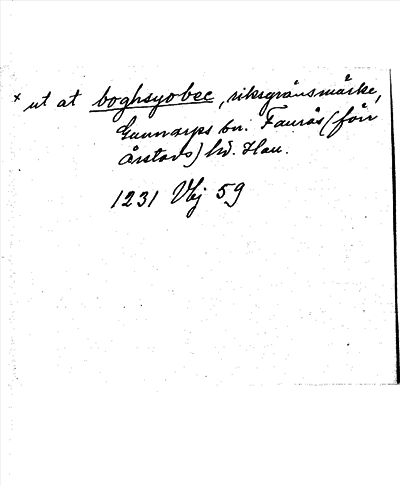 × ut at boghsyobec, riksgränsmärke,
Gunnarps sn. Faurås (förr
Årstads) hd. Hall.
1231 Vbj 59